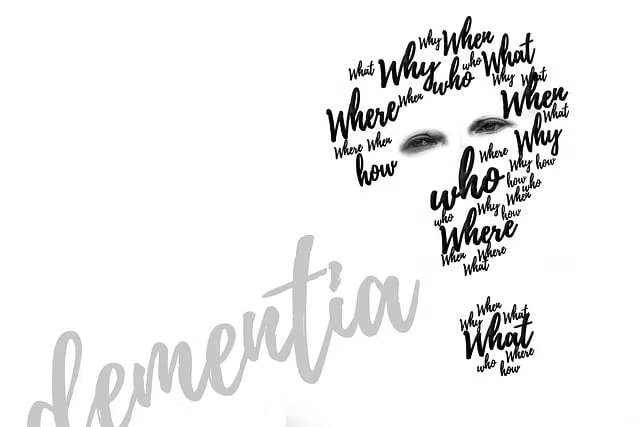 Why When
What Why who who What
Why What
Where When When
What
Where When Why
how Where
who Why how
how who
When
Why how
who
Where
When Where
What
dementia
When
Why What
What
who Where
how